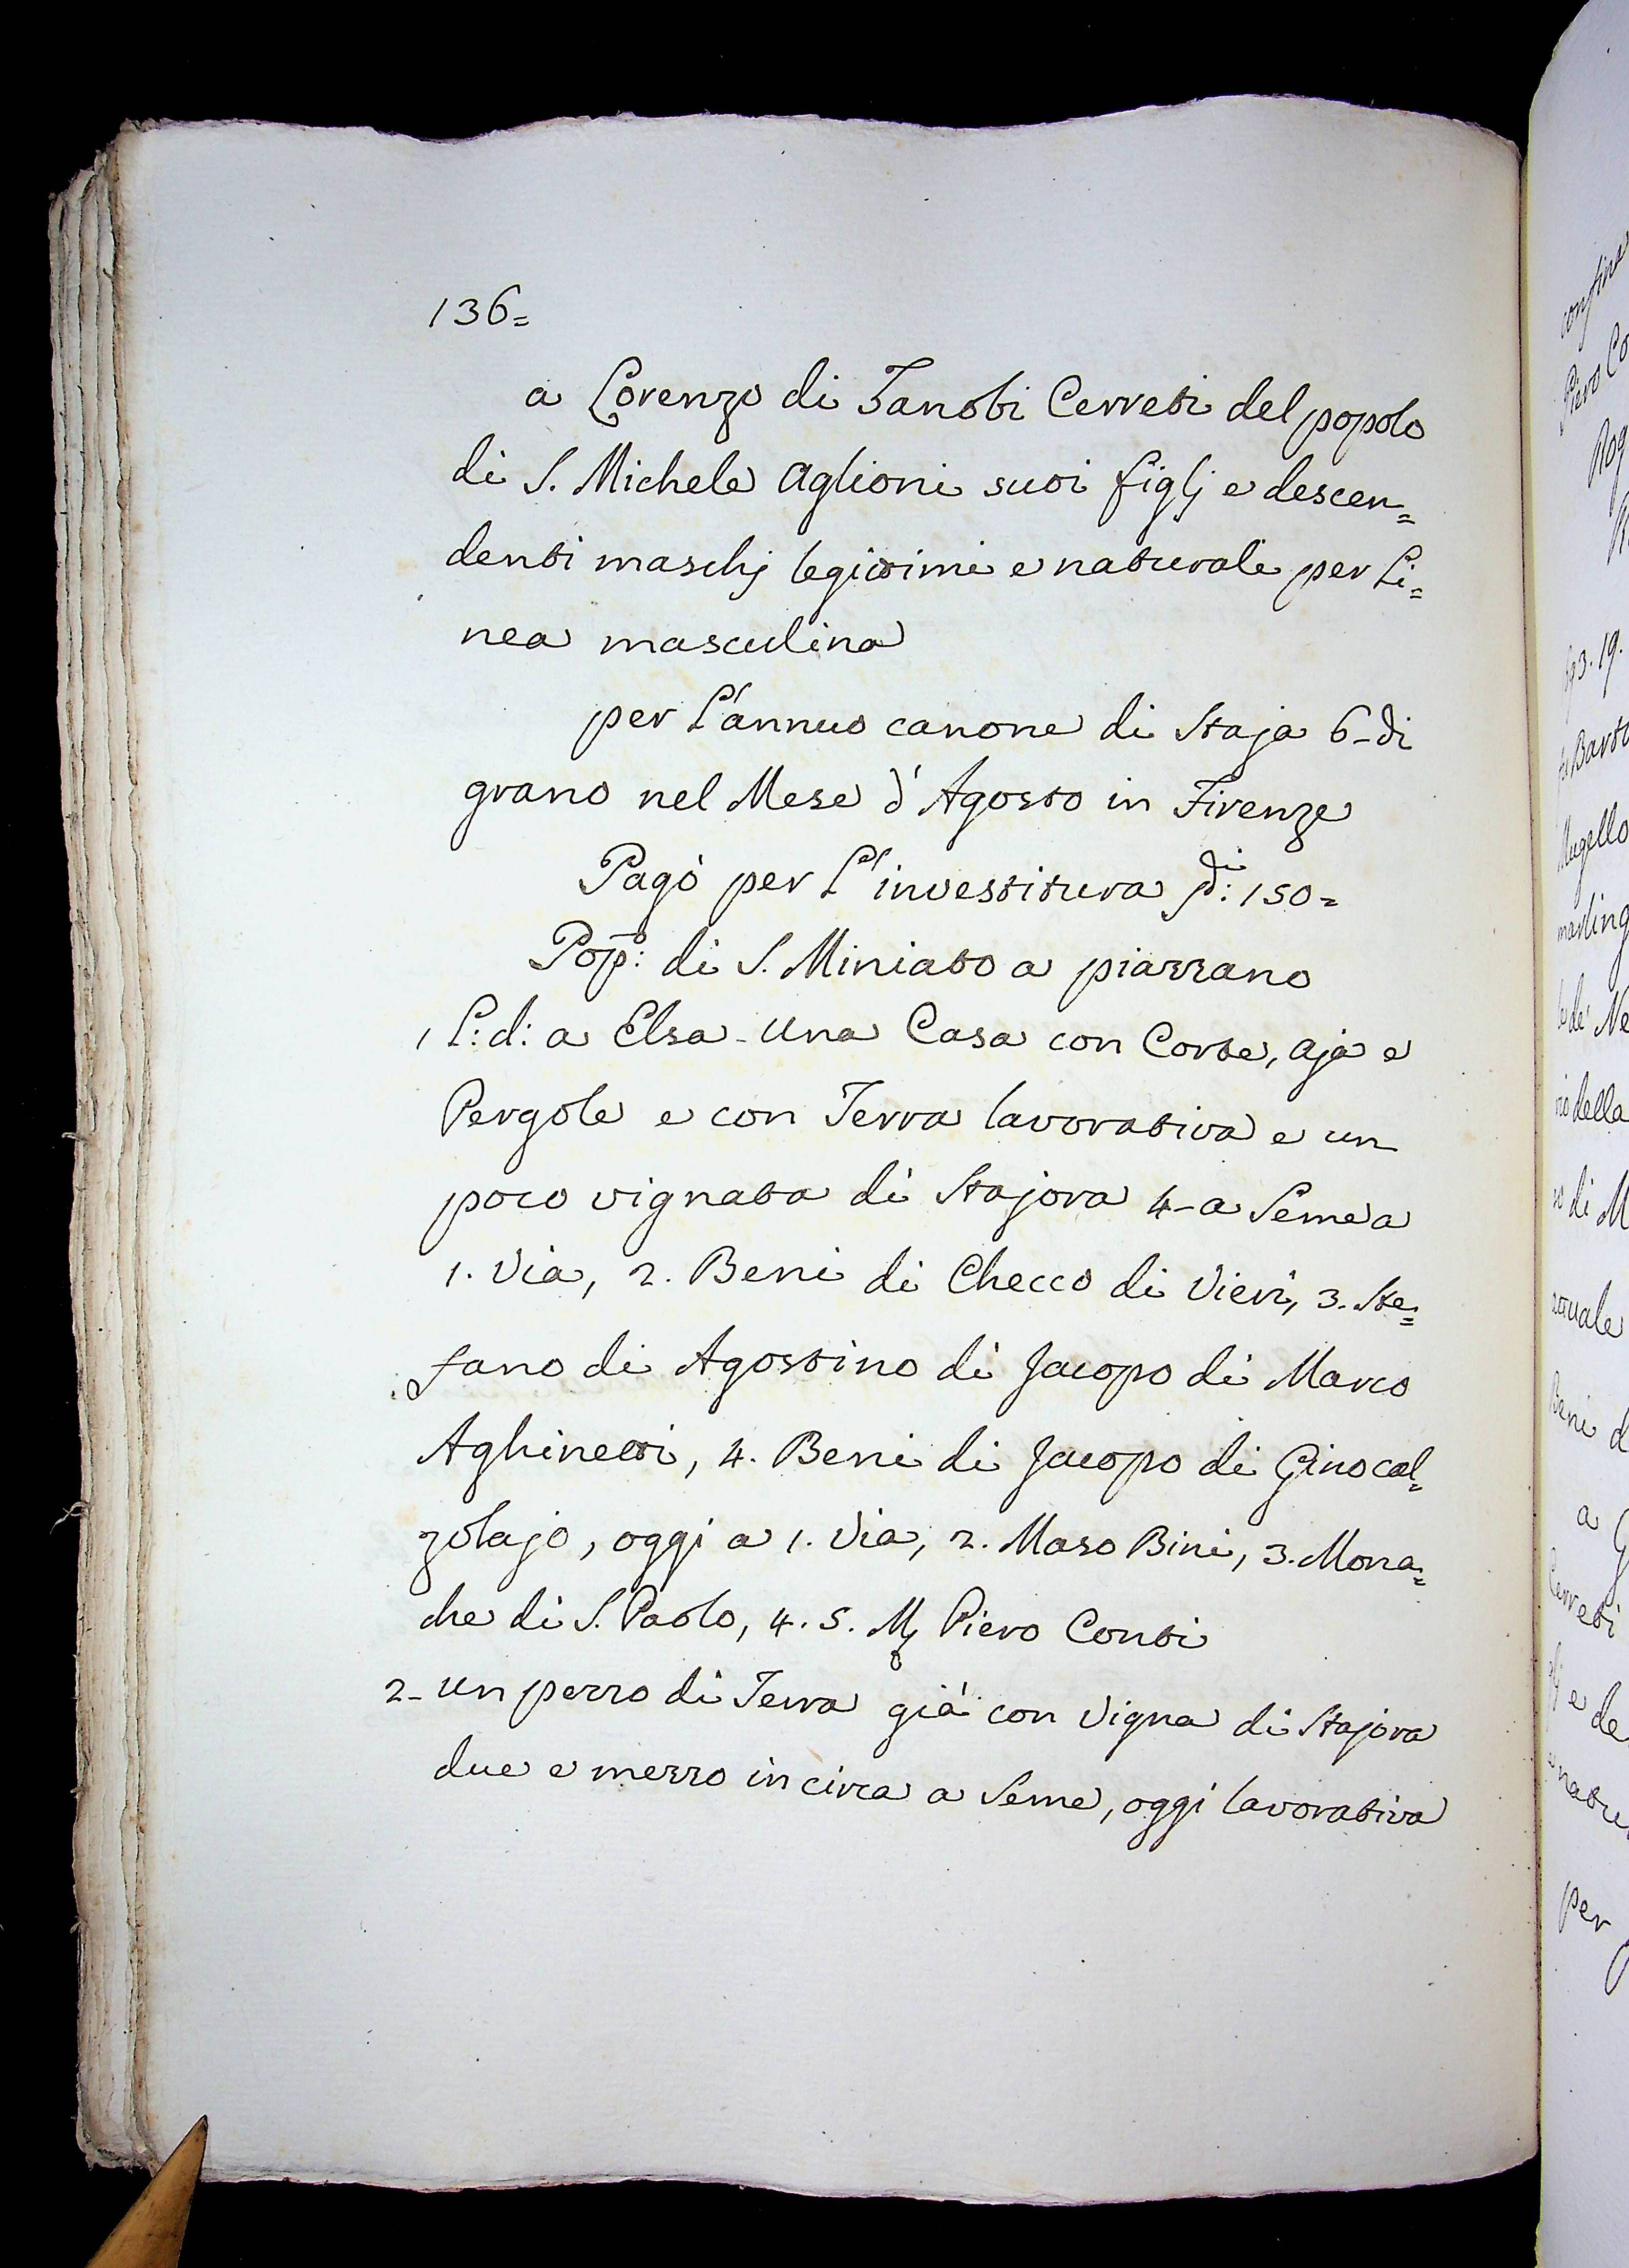 136=
a Lorenzo di Zanobi Cerreti del popolo
di S. Michele Aglioni suoi figlj e descen=
denti maschj legittimi e naturali per Li=
nea masculina
per L'annuo canone di Staja 6-di
grano nel Mese d'Agosto in Firenze
Pagò per L'investitura di: 150=
Pop: di S. Miniato a piazzano
1 L: d: a Elsa-una Casa con Corte, aja e
Pergole e con Terra lavorativa e un
poco vignata di Stajora 4-a Seme a
1. Via, 2. Beni di Checco di Vieri, 3. Ste=
fano di Agostino di Jacopo di Marco
Aghinetti, 4. Beni di Jacopo di Gino cal=
zolajo, oggi a 1. Via, 2. Maso Bini, 3. Mona=
che di S. Paolo, 4. 5. Piero Conti
2- un pezzo di Terra già con Vigna di Stajora
due e mezzo in circa a Seme, oggi lavorativa